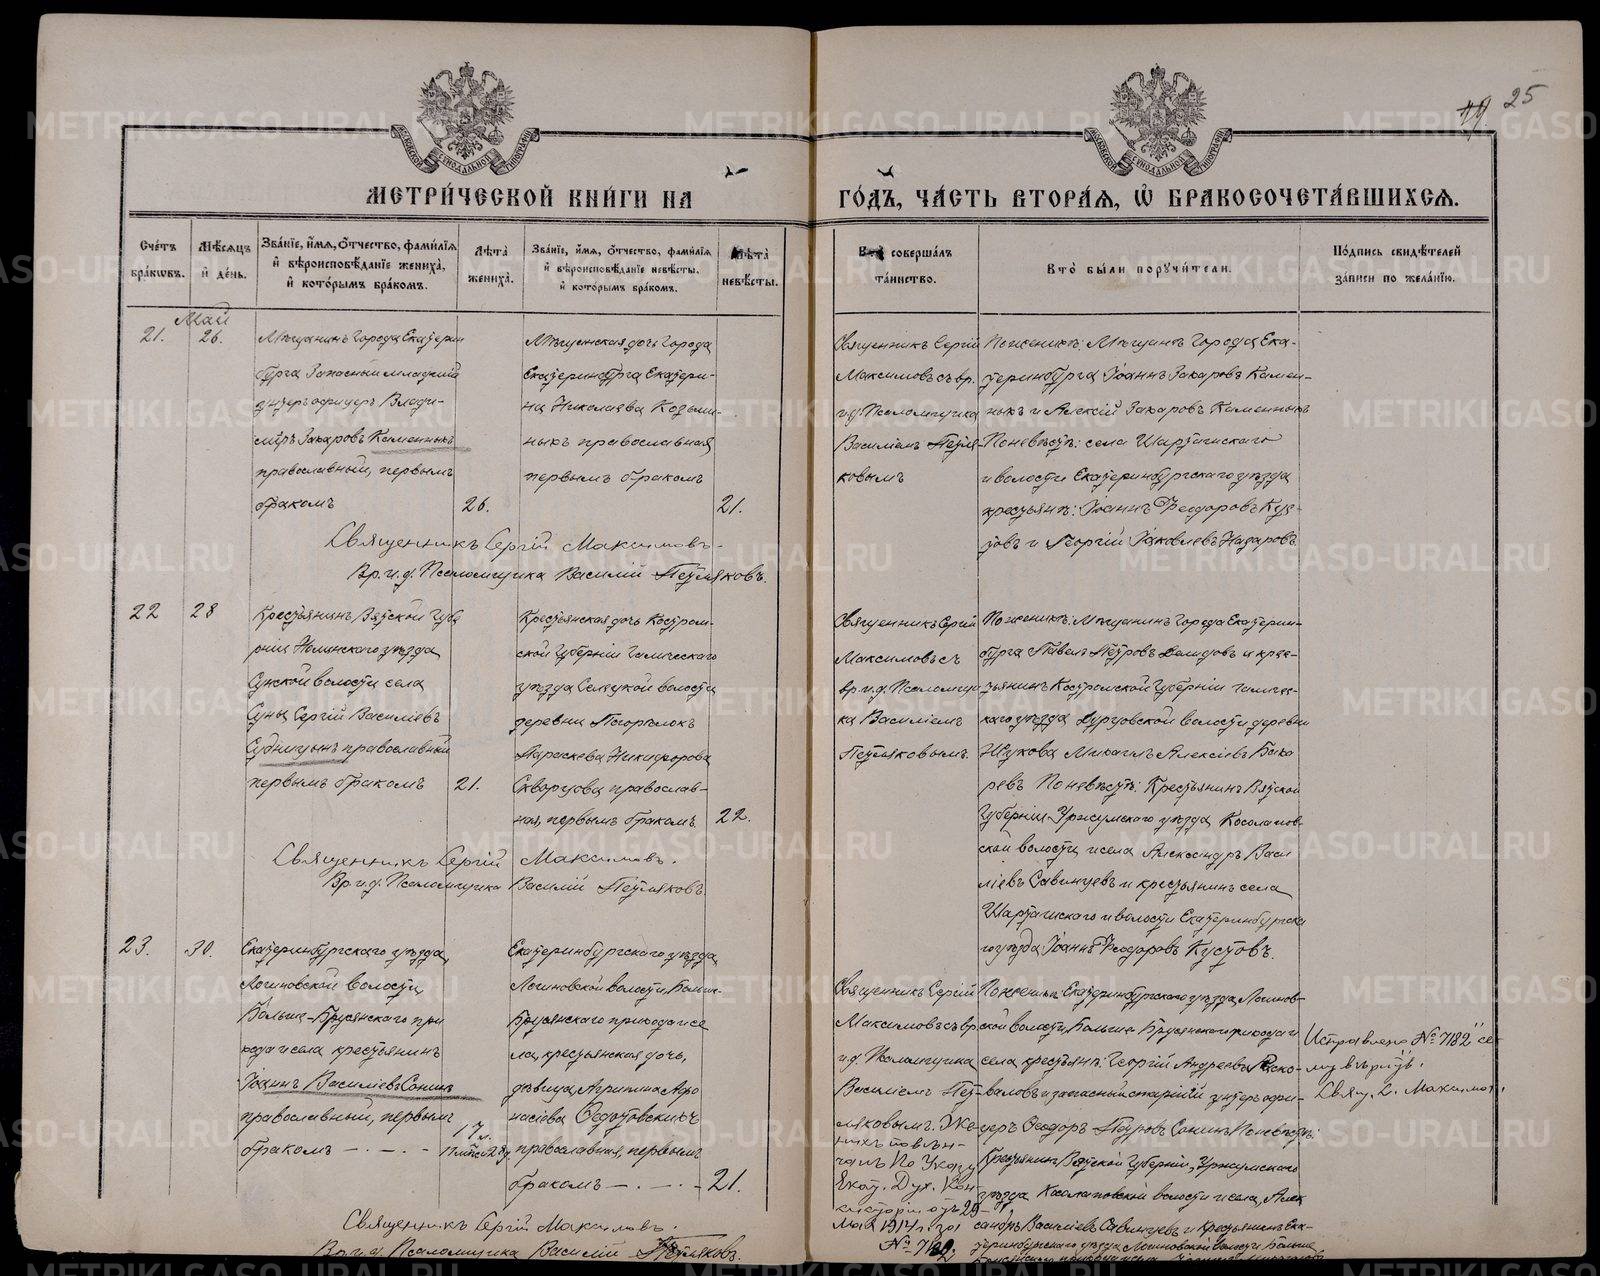 25
МЕТРИ́ЧЕСКОЙ КНИ́ГИ НА ГО́ДЪ, ЧА́СТЬ ВТОРА́Я, Ѡ҆ БРАКОСОЧЕТА́ВШИХСЯ.
Сче́тъ бра́кѡвъ.
Мѣ́сяцъ и҆ де́нь.
Зва́нїе, и҆́мя, ѻ҆́тчество, фами́лїя и҆ вѣроисповѣ́данїе жениха̀, и҆ кото́рымъ бра́комъ.
Лѣта̀ жениха̀.
Зва́нїе, и҆́мя, ѻ҆́тчество, фами́лїя и҆ вѣроисповѣ́данїе невѣ́сты. и҆ кото́рымъ бра́комъ.
Лѣта̀ невѣ́сты.
соверша́лъ та́инство.
Кто̀ бы́ли поручи́тели.
По́дпись свидѣ́телей за́писи по жела́нїю.
Май
21.
26.
Мѣщанинъ Города Екатерин
бурга Запасный младшій
унтеръ офицеръ Влади-
міръ Захаровъ Каменныхъ
православный, первымъ
бракомъ
26.
Мѣщанская дочь Города
Екатеринбурга Екатери-
на Николаева Козьми-
ныхъ православная
первымъ бракомъ
21.
Священникъ Сергій
Максимовъ съ вр.
и.д. Псаломщика
Василіемъ Петля-
ковымъ
По женихѣ: Мѣщане Города Ека-
теринбурга Іоаннъ Захаровъ Камен-
ныхъ и Алексій Захаровъ Каменныхъ
По невѣстѣ: села Шарташскаго
и волости Екатеринбургскаго уѣзда
крестьяне: Іоаннъ Ѳеодоровъ Кус-
товъ и Георгій Іаковлевъ Назаровъ
Священникъ Сергій Максимовъ.
Вр. и. д. Псаломщика Василій Петляковъ.
22
28
Крестьянинъ Вятской Губе
рніи Нолинскаго уѣзда
Сунской волости села
Суны Сергій Василіевъ
Судницынъ православный
первымъ бракомъ
21.
Крестьянская дочь Костром-
ской Губерніи Галическаго
уѣзда волости
деревни Погорѣлокъ
Параскева Никифорова
Скворцова православ-
ная, первымъ бракомъ.
22.
Священникъ Сергій
Максимовъ съ
вр. и. д. Псаломщи
ка Василіемъ
Петляковымъ.
По женихѣ: Мѣщанинъ Города Екатерин-
бурга Павелъ Петровъ Демидовъ и крес-
тьянинъ Костромской Губерніи Галичес-
каго уѣзда волости деревни
Жукова Михаилъ Алексіевъ
ревъ По невѣстѣ: Крестьянинъ Вятской
Губерніи Уржумскаго уѣзда Косолапов-
ской волости и села Александръ Васи
ліевъ Савинцевъ и крестьянинъ села
Шарташскаго и волости Екатеринбургска
го уѣзда Іоаннъ Ѳеодоровъ Кустовъ.
Священникъ Сергій Максимовъ.
Вр. и. д. Псаломщика Василій Петляковъ.
23.
30.
Екатеринбургскаго уѣзда
Логиновской волости
Больше-Брусянскаго при
хода и села крестьянинъ
Іоаннъ Василіевъ Сонинъ
православный, первымъ
бракомъ
17 л.
Екатеринбургскаго уѣзда
Логиновской волости, Больше-
Брусянскаго прихода и се
ла, крестьянская дочь,
дѣвица Агрипина Аѳо
насіева Ѳедотовскихъ
православная, первымъ
бракомъ
21.
Священникъ Сергій
Максимовъ съ вр
и.д. Псаломщика
Василіемъ Пет-
ляковымъ. Же-
нихъ повѣн-
чанъ по Указу
Екат. Дух. Кон-
систоріи отъ 29
мая 1914 г. за
№ 7182.
По женихѣ Екатеринбургскаго уѣзда, Логинов-
ской волости, Больше Брусянскаго прихода и
села крестьяне: Георгій Андреевъ
валовъ и запасный старшій унтеръ офи-
церъ Ѳеодоръ Петровъ Сонинъ По невѣстѣ:
Крестьянинъ Вятской Губерніи, Уржумскаго
уѣзда Косолаповской волости и села, Алек
сандръ Василіевъ Савинцевъ и Крестьянинъ Ека-
теринбургскаго уѣзда Логиновской волости Больше
Исправлено № "7182" се-
му вѣрить.
Свящ. С. Максимовъ.
Священникъ Сергій Максимовъ.
Вр. и. д. Псаломщика Василій Петляковъ.
METRIKI.GASO-URAL.RU